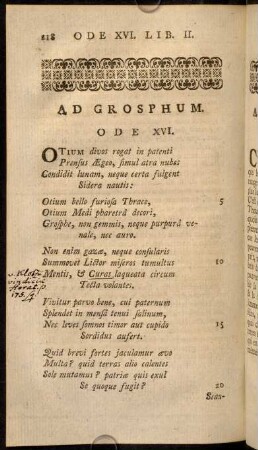 218 ODE XVI. LIB. II.
AD GROSPHUM.
ODE XVI.
OTIUM divos rogat in patenti
Prensus Ægeo, ſimul atra nubes
Condidit lunam, neque certa fulgent
Sidera nautis:
Otium bello furioſa Thrace, 5
Otium Medi pharetrâ decori,
Groſphe, non gemmis, neque purpurâ ve-
nale, nec auro.
Non enim gazæ, neque conſularis
Summovet Lictor miſeros tumultus 10
Mentis, & Curas laqueata circum
Tecta volantes.
Vivitur parvo bene, cui paternum
Splendet in menſâ tenui ſalinum,
Nec leves ſomnos timor aut cupido 15
Sordidus aufert.
Quid brevi fortes jaculamur ævo
Multa? quid terras alio calentes
Sole mutamus? patriæ quis exul
Se quoque fugit? 20
Scan-